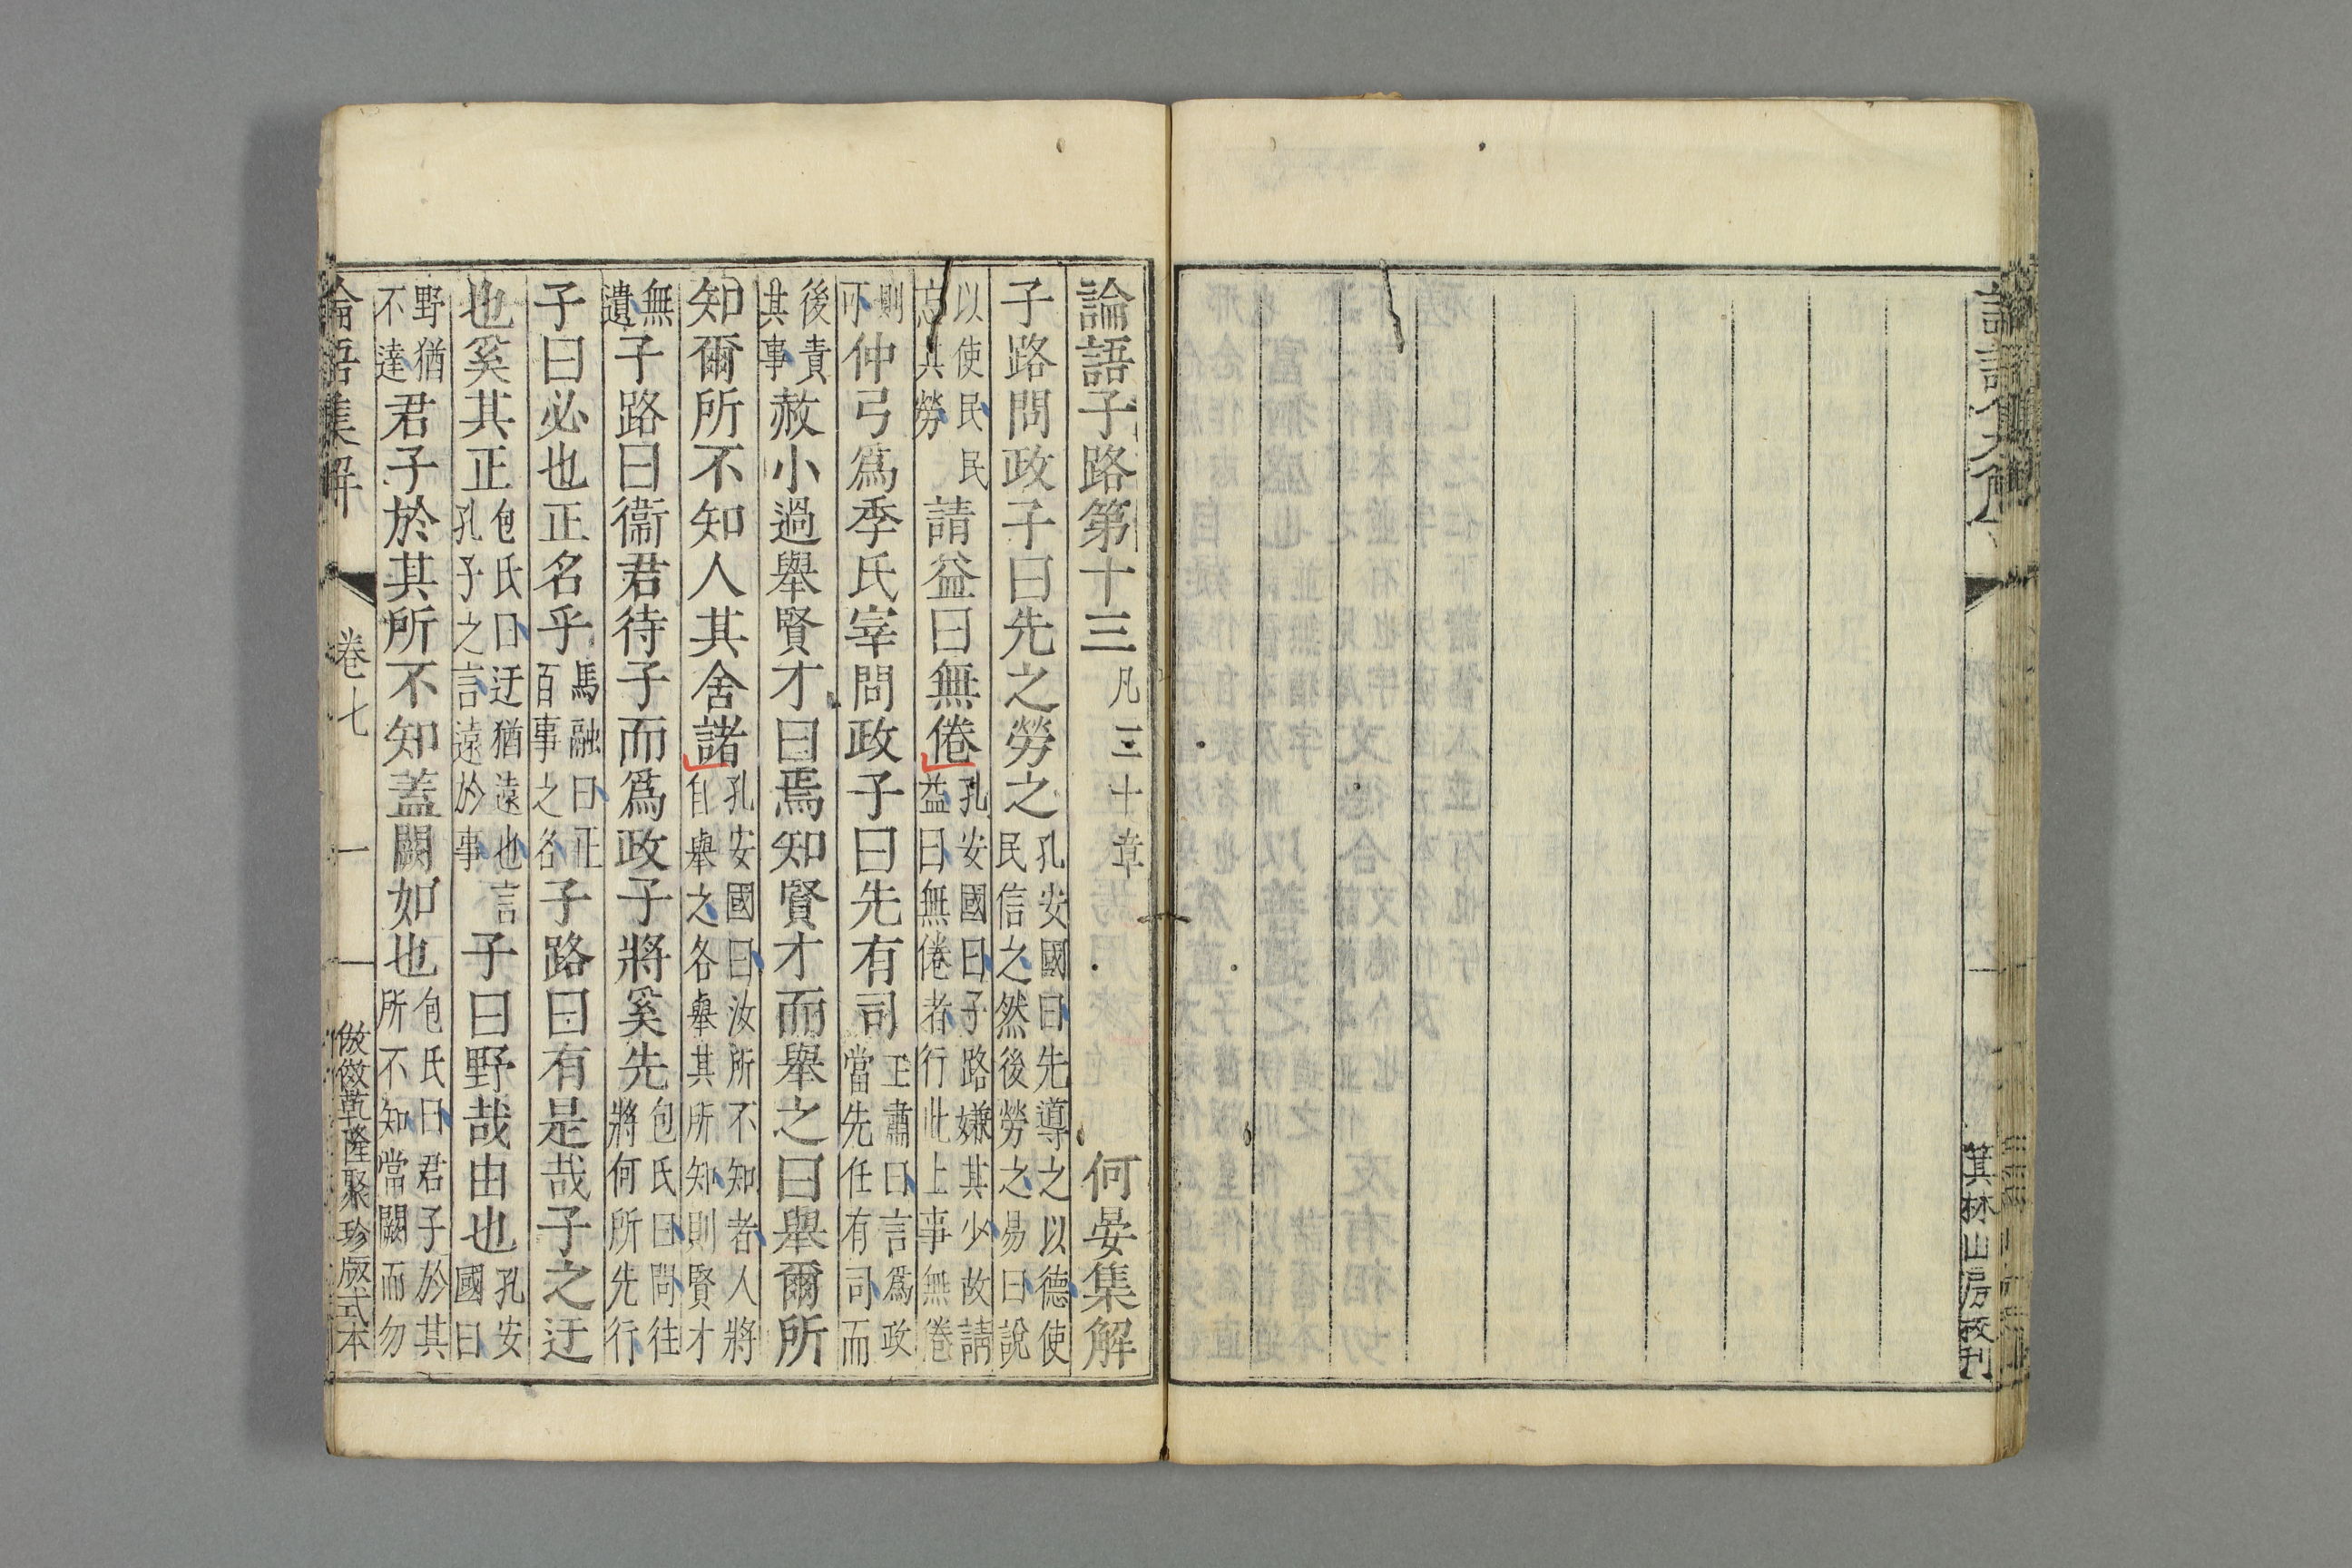 箕林山房改刊
論語子路第十三凡三十章何晏集解
子路問政子曰先之勞之孔安國曰先導之以德使民信之然後勞之易曰說
以使民民忘其勞請益曰無倦孔安國曰子路嫌其少故請益曰無倦者行此上事無倦
則可仲弓爲季氏宰問政子曰先有司王肅曰言爲政當先任有司而
後責其事赦小過舉賢才曰焉知賢才而舉之曰舉爾所
知爾所不知人其舍諸孔安國曰汝所不知者人將自舉之各舉其所知則賢才
無遺子路曰衞君待子而爲政子將奚先包氏曰問往將何所先行
子曰必也正名乎馬融曰正百事之名子路曰有是哉子之迂
也奚其正包氏曰迂猶遠也言孔子之言遠於事子曰野哉由也孔安國曰
野猶不達君子於其所不知蓋闕如也包氏曰君子於其所不知當闕而勿
論語集解 卷七 一 倣傚乾隆聚珍版式本